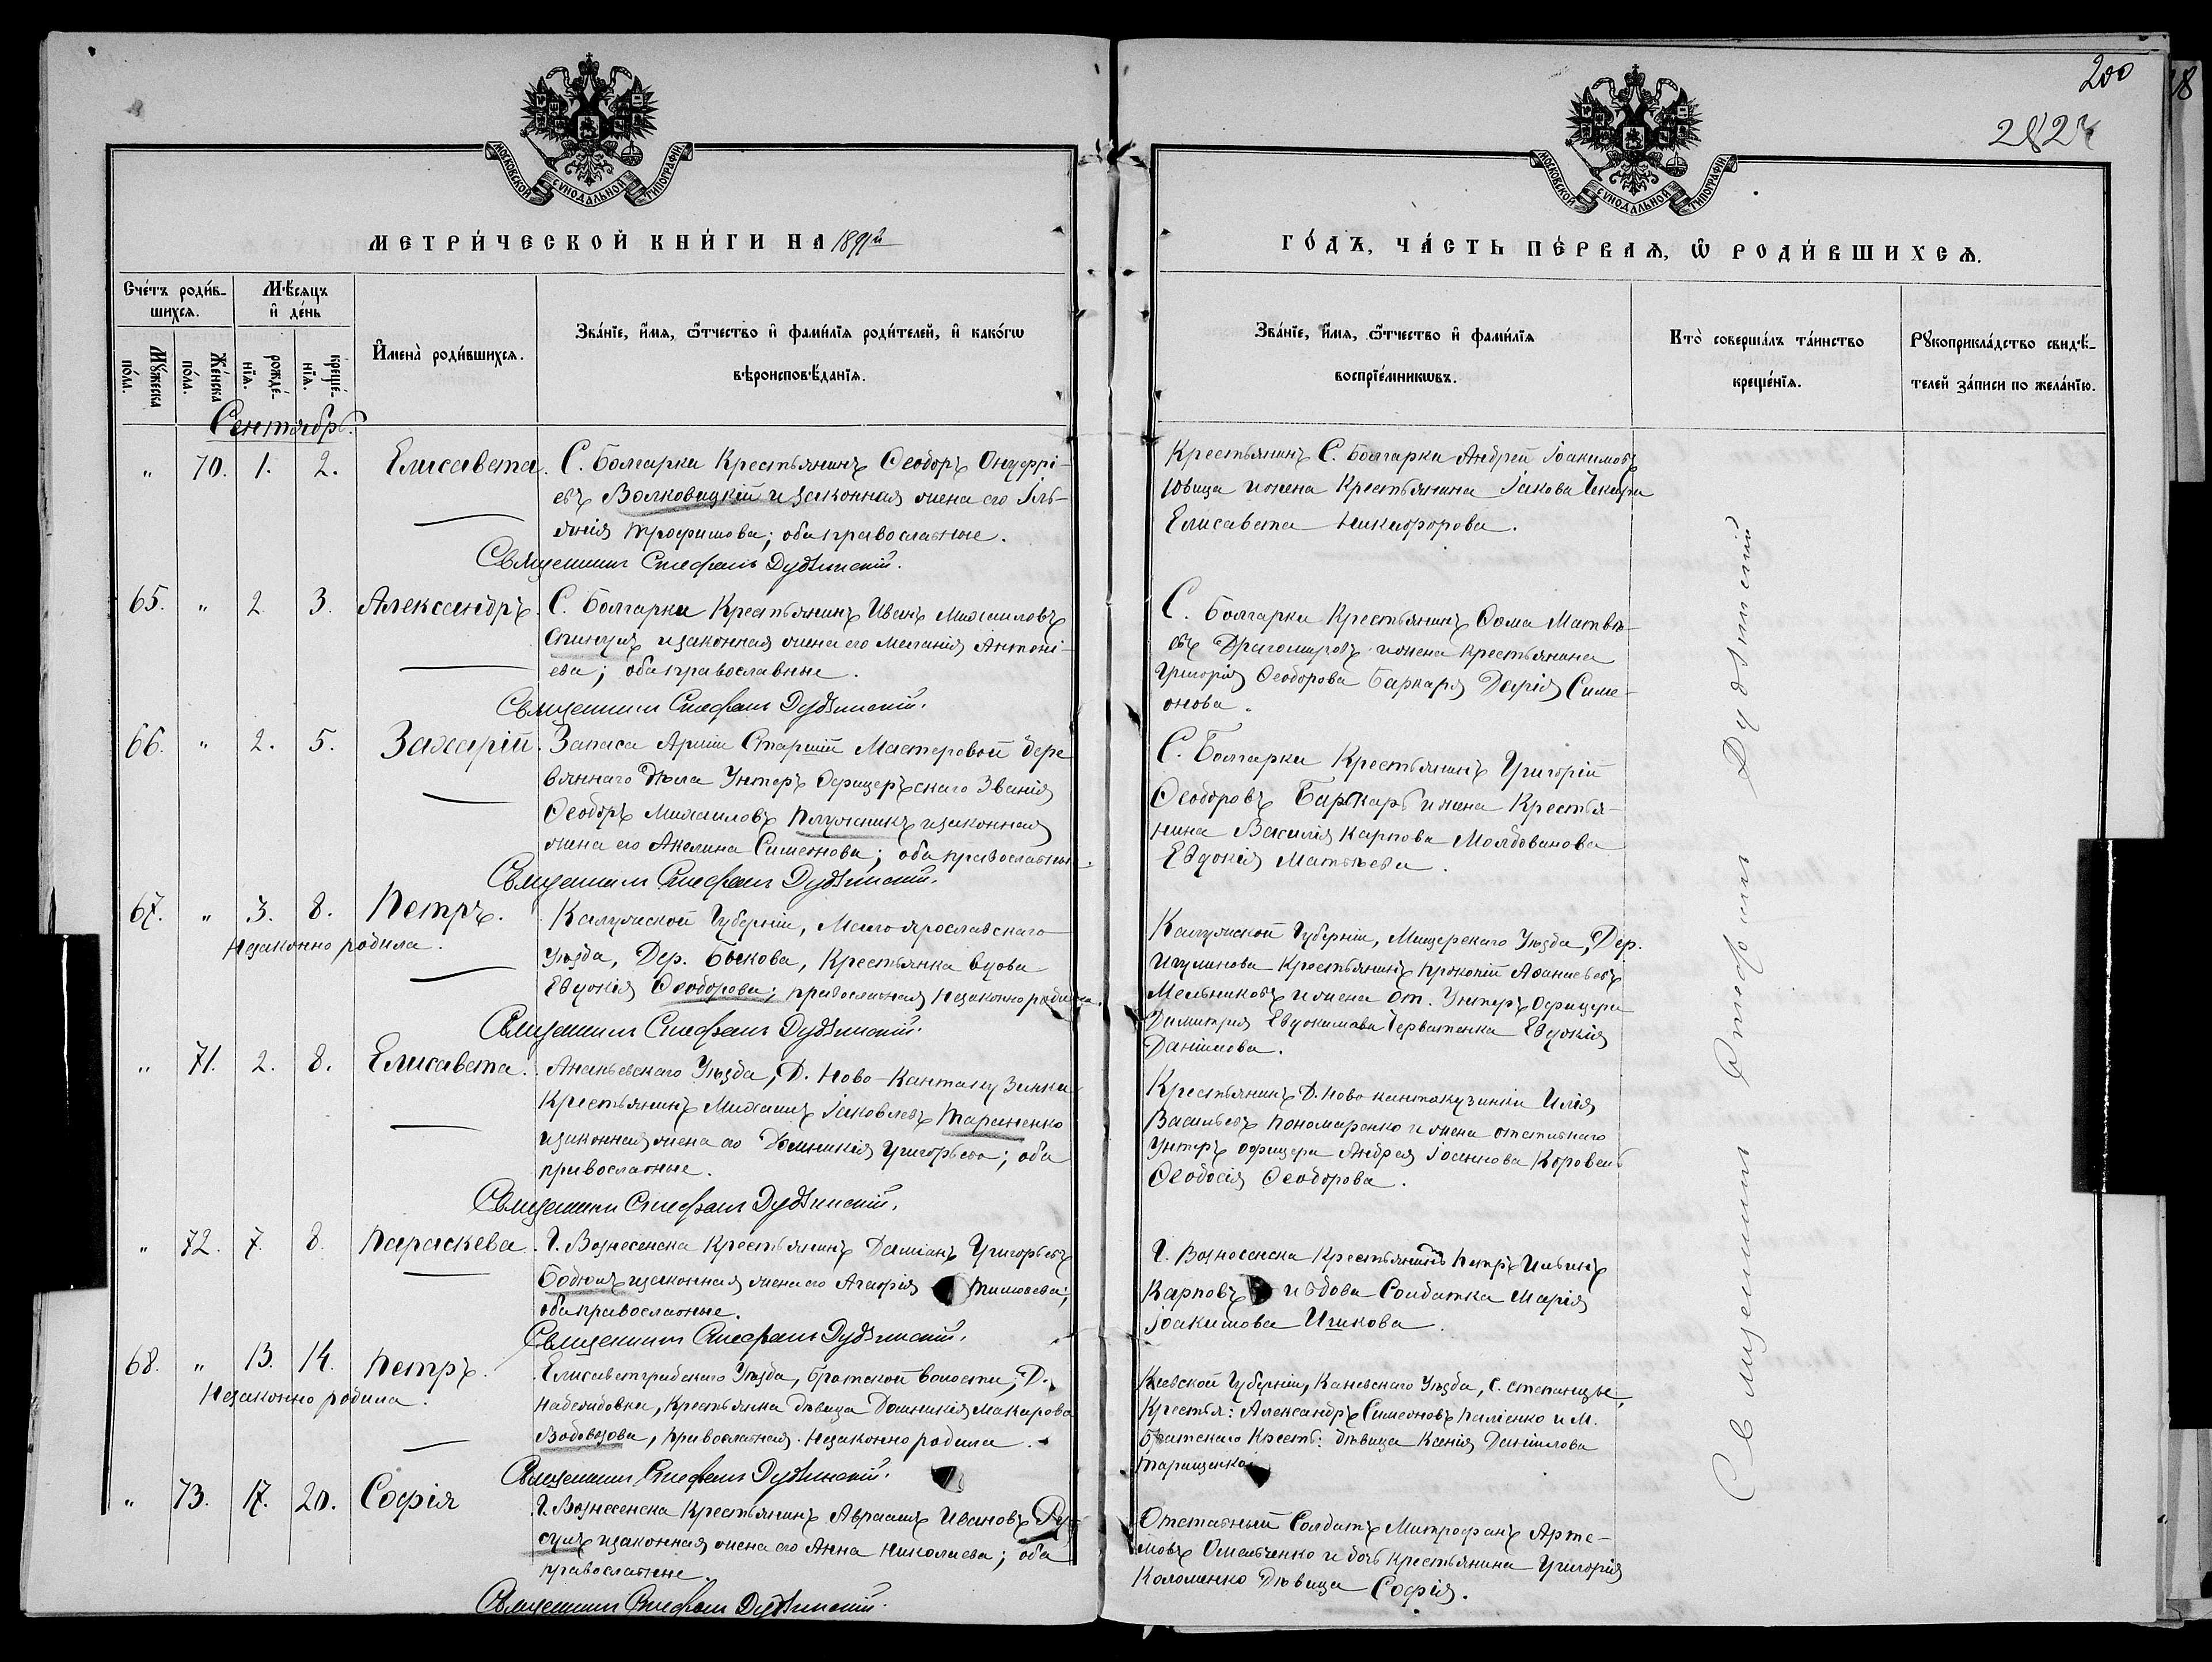 200
282
МОСКОВСКОЙ СУНОДАЛЬНОЙ ТИПОГРАФІИ.
МОСКОВСКОЙ СУНОДАЛЬНОЙ ТИПОГРАФІИ.
МЕТРИ́ЧЕСКОЙ КНИ́ГИ НА 1891й
ГО́ДЪ, ЧА́СТЬ ПЕ́РВАѦ, Ѿ РОДИ́ВШИХСѦ.
Сче́тъ роди́в-
шихсѧ.
Мѣ́сѧцъ
и҆ де́нь
Мꙋ́жеска
по́ла.
Же́нска
по́ла.
рожде́-
нїѧ.
креще́-
нїѧ.
И҆мена̀ роди́вшихсѧ.
Зва́нїе, и҆́мѧ, ѻ҆́тчество и҆ фами́лїѧ роди́телей, и҆ како́гѡ
вѣроисповѣ́данїѧ.
Зва́нїе, и҆́мѧ, ѻ҆́тчество и҆ фами́лїѧ
воспрїе́мникѡвъ.
Кто̀ соверша́лъ та́инство
креще́нїѧ.
Рꙋкоприкла́дство свидѣ́-
телей за́писи по жела́нїю.
Сентябрь.
" 70. 1. 2. Елисавета. С. Болгарки Крестьянинъ Ѳеодоръ Онуфрі-
евъ Волковицкій и законная жена его Іль-
янія Трофимова; оба православные.
Священникъ Стефанъ Дудѣпскій.
Крестьянинъ С. Болгарки Андрей Іоакимовъ
Ювица и жена Крестьянина Іакова Чекира
Елисавета Никифорова.
65. " 2 3. Александръ. С. Болгарки Крестьянинъ Иванъ Михаиловъ
и законная жена его Меланія Антоні-
ева; оба православные.
Священникъ Стефанъ Дудѣпскій.
С. Болгарки Крестьянинъ Ѳома Матвѣ-
евъ Драгомировъ и жена Крестьянина
Григорія Ѳеодорова Баркаря Дарія Симе-
онова.
66. " 2. 5. Захарій. Запаса Арміи Старшій Мастеровой дере
вяннаго дѣла Унтеръ Офицерскаго Званія
Ѳеодоръ Михаиловъ Плужникъ и законная
жена его Акелина Симеонова; оба православные.
Священникъ Стефанъ Дудѣпскій.
С. Болгарки Крестьянинъ Григорій
Ѳеодоровъ Баркарь и жена Крестья-
нина Василія Карпова Молдованова
Евдокія Матѣева.
67. " 3. 8. Петръ. Калужской Губерніи, Малоярославскаго
Незаконно родила.
Уѣзда, Дер. Быкова, Крестьянка вдова
Евдокія Ѳеодорова; православная незаконно родила.
Священникъ Стефанъ Дудѣпскій.
Калужской Губерніи, Мещерскаго Уѣзда, Дер.
Игумнова Крестьянинъ Прокопій Аѳанасьевъ
Мельниковъ и жена От. Унтеръ Офицера
Димитрія Евдокимова Черватенка Евдокія
Даніилова.
" 71. 2. 8. Елисавета. Ананьевскаго Уѣзда, Д. Ново-Кантакузинки
Крестьянинъ Михаилъ Іаковлевъ Тараненко
и законная жена его Домникія Григорьева; оба
православные.
Священникъ Стефанъ Дудѣпскій.
Крестьянинъ Д. Ново кантакузинки Илія
Васильевъ Пономаренко и жена отставнаго
Унтеръ офицера Андрея Іоаннова
Ѳеодосія Ѳеодорова.
" 72. 7. 8. Параскева. Г. Вознесенска Крестьянинъ Даміанъ Григорьевъ
Бодюлъ и законная жена его Агафія Тимоѳеева;
оба православные.
Священникъ Стефанъ Дудѣпскій.
Г. Вознесенска Крестьянинъ Петръ Ильинъ
Карповъ и вдова Солдатка Марія
Іоакимова Ишкова.
68. " 13. 14. Петръ. Елисаветградскаго Уѣзда, Братской волости, Д.
Незаконно родила.
Надеждовки, Крестьянка дѣвица Домникія Макарова
Водовозова, православная. Незаконно родила.
Священникъ Стефанъ Дудѣпскій.
Кіевской Губерніи, Каневскаго Уѣзда, С. Степанцы,
Крестья: Александръ Симеоновъ Паліенко и М.
Братскаго Крест: дѣвица Ксенія Даніилова
Таращенкова
" 73. 17. 20. Софія Г. Вознесенска Крестьянинъ Авраамъ Ивановъ Ру-
сулъ и законная жена его Анна Николаева; оба
православные.
Священникъ Стефанъ Дудѣпскій.
Отставный Солдатъ Митрофанъ Арте-
мовъ Омельченко и дочь крестьянина Григорія
Коломенко Дѣвица Софія.
Священникъ Стефанъ Дудѣпскій